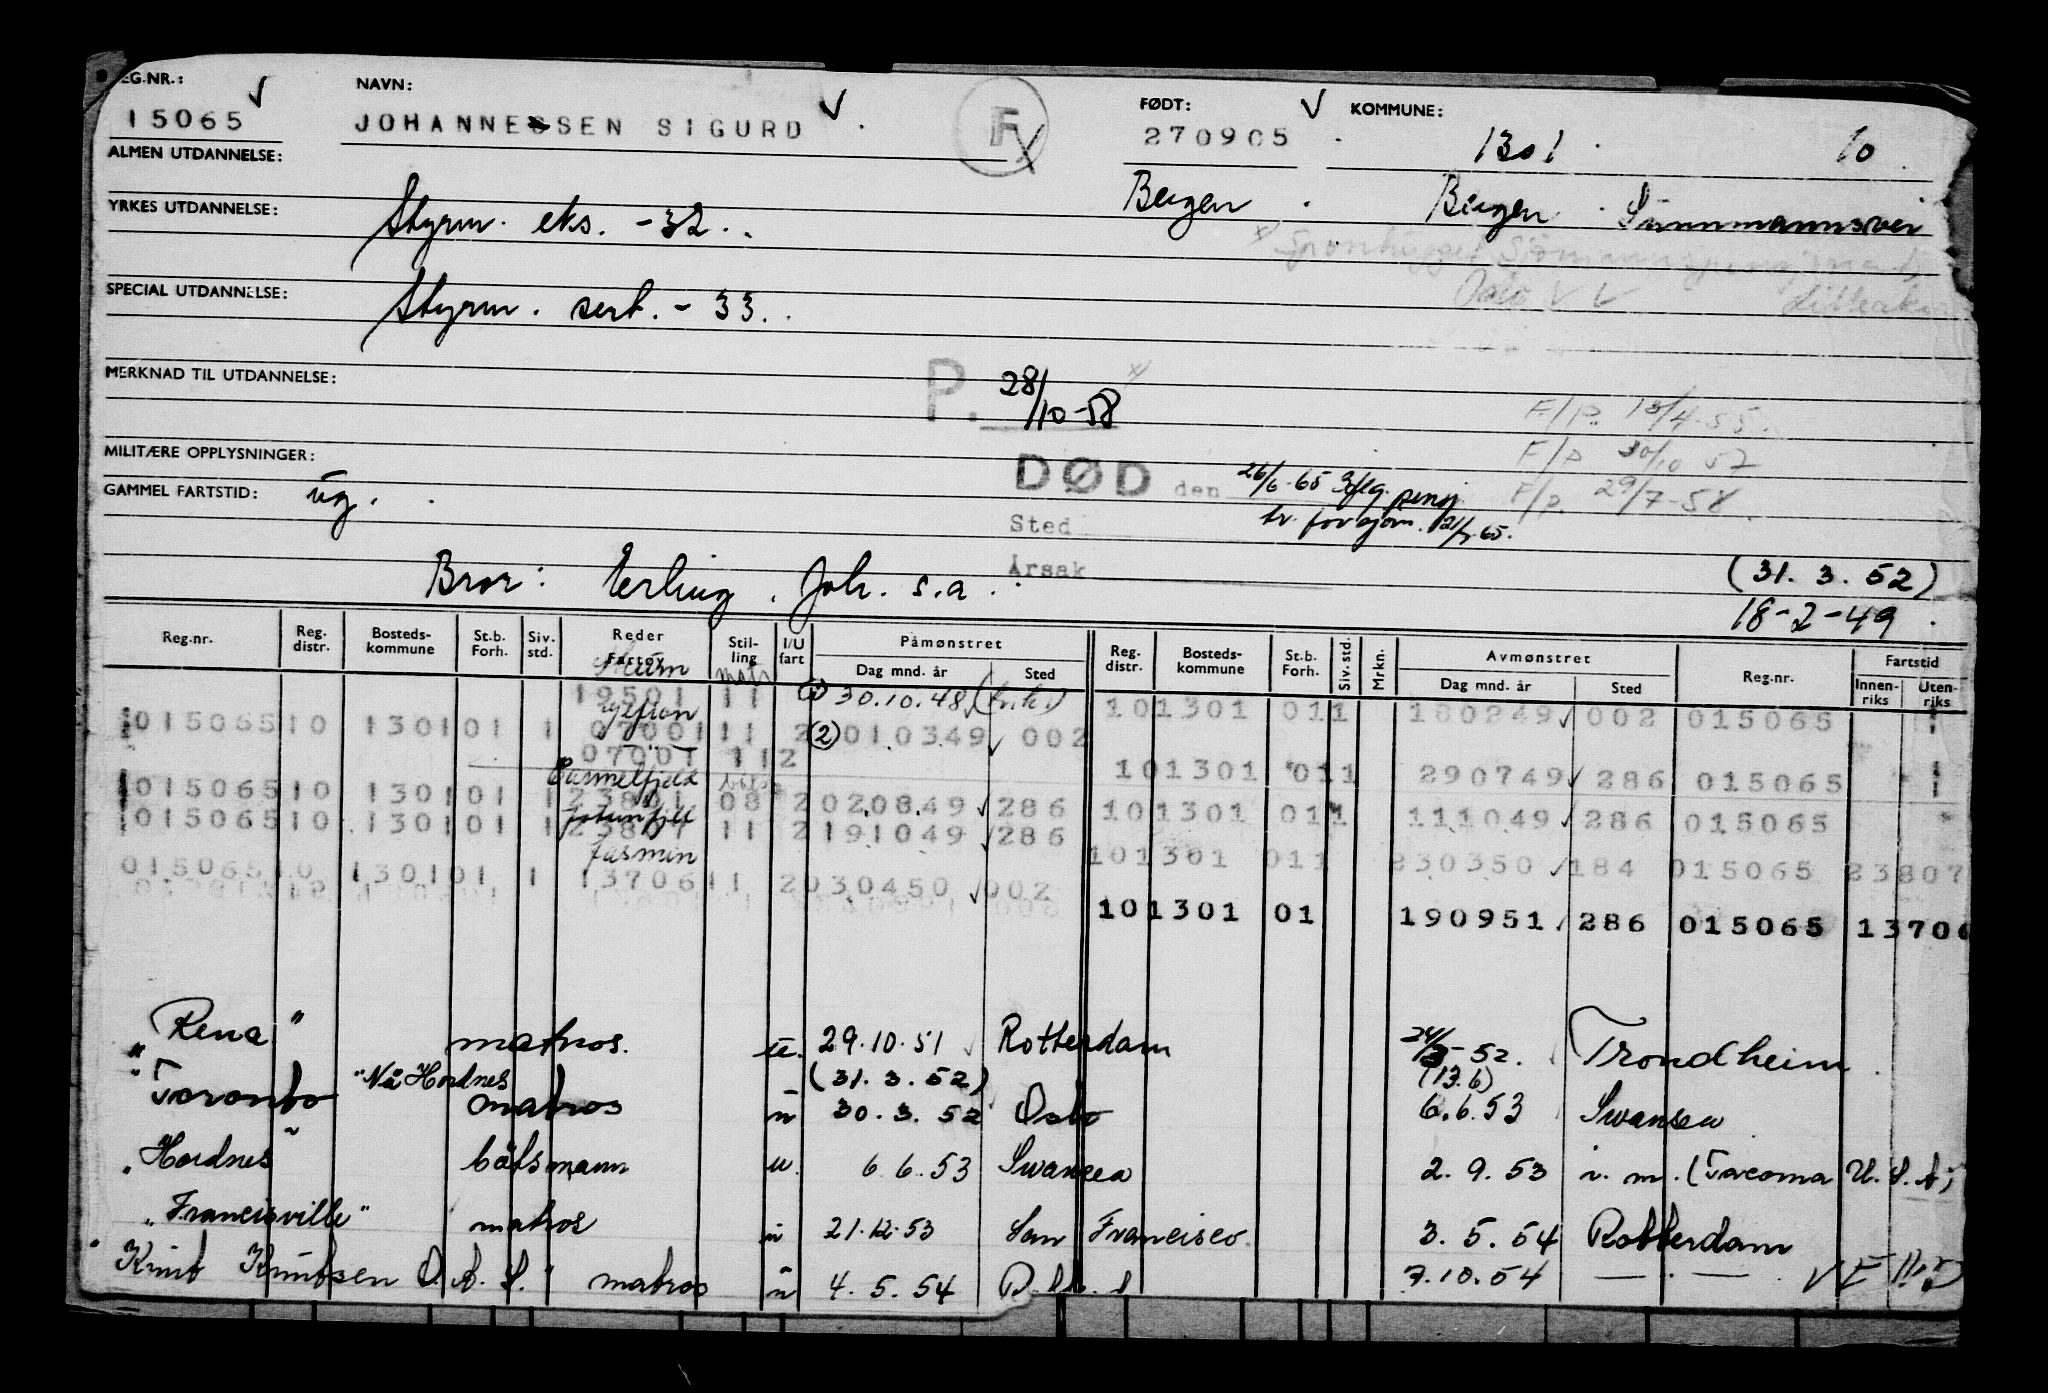 EG.NR.: NAVN: FØDT: KOMMUNE:
15065 JOHANNESSEN SIGURD F 270905 1301 10
ALMEN UTDANNELSE: Bergen Bergen
YRKES UTDANNELSE: Styrm. eks. -32.
Oslo
SPECIAL UTDANNELSE: Styrm. sert. -33.
MERKNAD TIL UTDANNELSE: P. 28/10-58
F/p. 13/4-55.
MILITÆRE OPPLYSNINGER: F/p 30/10 57
GAMMEL FARTSTID: ug. DØD den 26/6-65 iflg. pensj. F/p. 29/7-58
Sted tr. for sjøm.
Bror: Erling Joh. s.a. Årsak (31.3.52)
18-2-49
Reg.nr. Reg. distr. Bosteds-kommune St.b. Forh. Siv. std. Reder Fartøy Stil-ling I/U fart Påmønstret Dag mnd. år Sted Reg. distr. Bosteds-kommune St.b. Forh. Siv. std. Mrkn. Avmønstret Dag mnd. år Sted Reg.nr. Fartstid Innen-riks Uten-riks
19501 11 (1) 30.10.48 101301 011 180249 002 015065
015065 10 1301 01 1 07001 11 2 (2) 010349 002
07001 11 2 101301 011 290749 286 015065
015065 10 1301 01 1 23801 08 2 020849 286 101301 011 111049 286 015065
Jotunfjell
015065 10 1301 01 1 23807 11 2 191049 286 101301 011 230350 184 015065 23807
Jasmin
015065 10 1301 01 1 13706 11 2 030450 002
101301 01 190951 286 015065 13706
"Rena" matros. u. 29.10.51 Rotterdam 24/3-52. Trondheim.
"Toronto" "Nå Hordnes (31.3.52) (13.6)
matros u 30.3.52 Oslo 6.6.53 Swansea
"Hordnes" båtsmann u. 6.6.53 Swansea 2.9.53 i.m. (Tacoma U.S.A)
"Francisville" matros u 21.12.53 San Francisco 3.5.54 Rotterdam
"Knut Knutsen O.A.S." matros u 4.5.54 7.10.54 — . — .